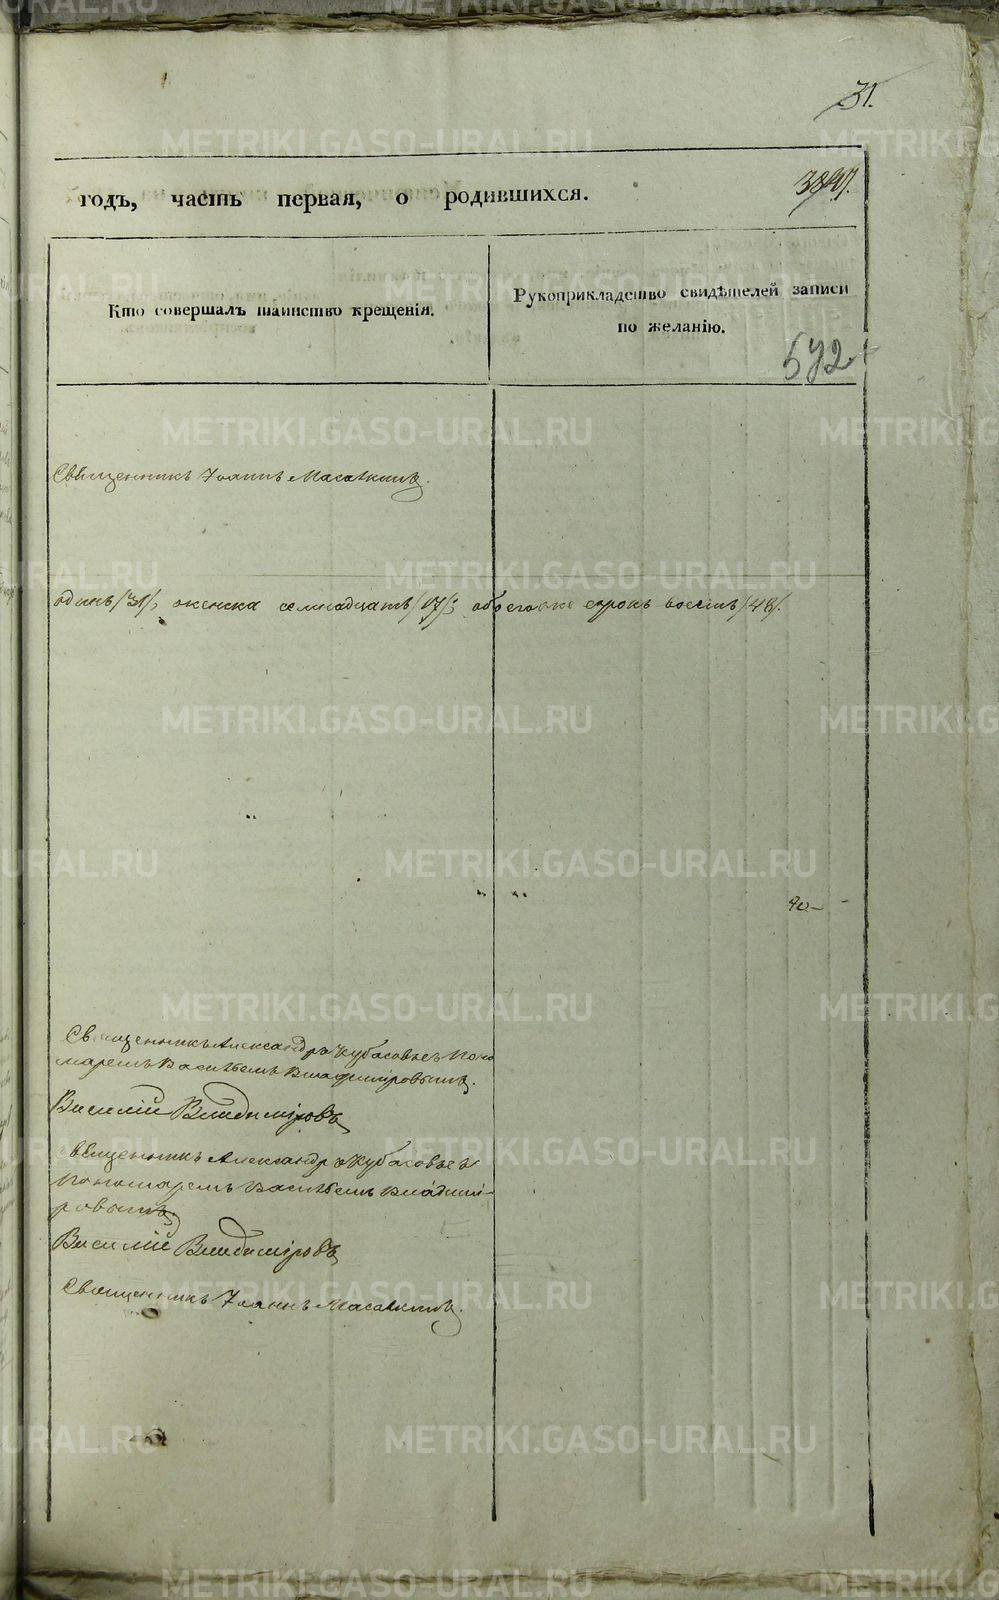 31.
годъ, часть первая, о родившихся.
Кто совершалъ таинство крещенія.
Рукоприкладство свидѣтелей записи
по желанію.
572
Священникъ Іоаннъ
одинъ /31/, а женска семнадцать /17/; а обоего же сорокъ восемь /48/.
Священникъ Александръ Кубасовъ съ поно
маремъ Васильемъ Владиміровымъ.
Василій Владиміровъ
Священникъ Александръ Кубасовъ съ
пономаремъ Васильемъ Владимі-
ровымъ.
Василій Владиміровъ
Священникъ Іоаннъ
METRIKI.GASO-URAL.RU